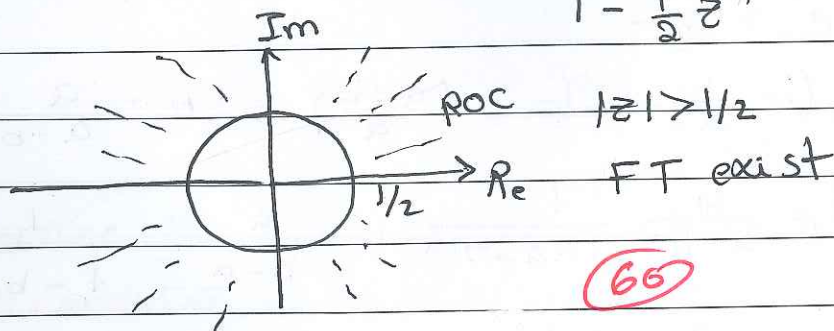 1 - 1/2 z
Im
ROC |z| > 1/2
1/2 Re FT exist
66